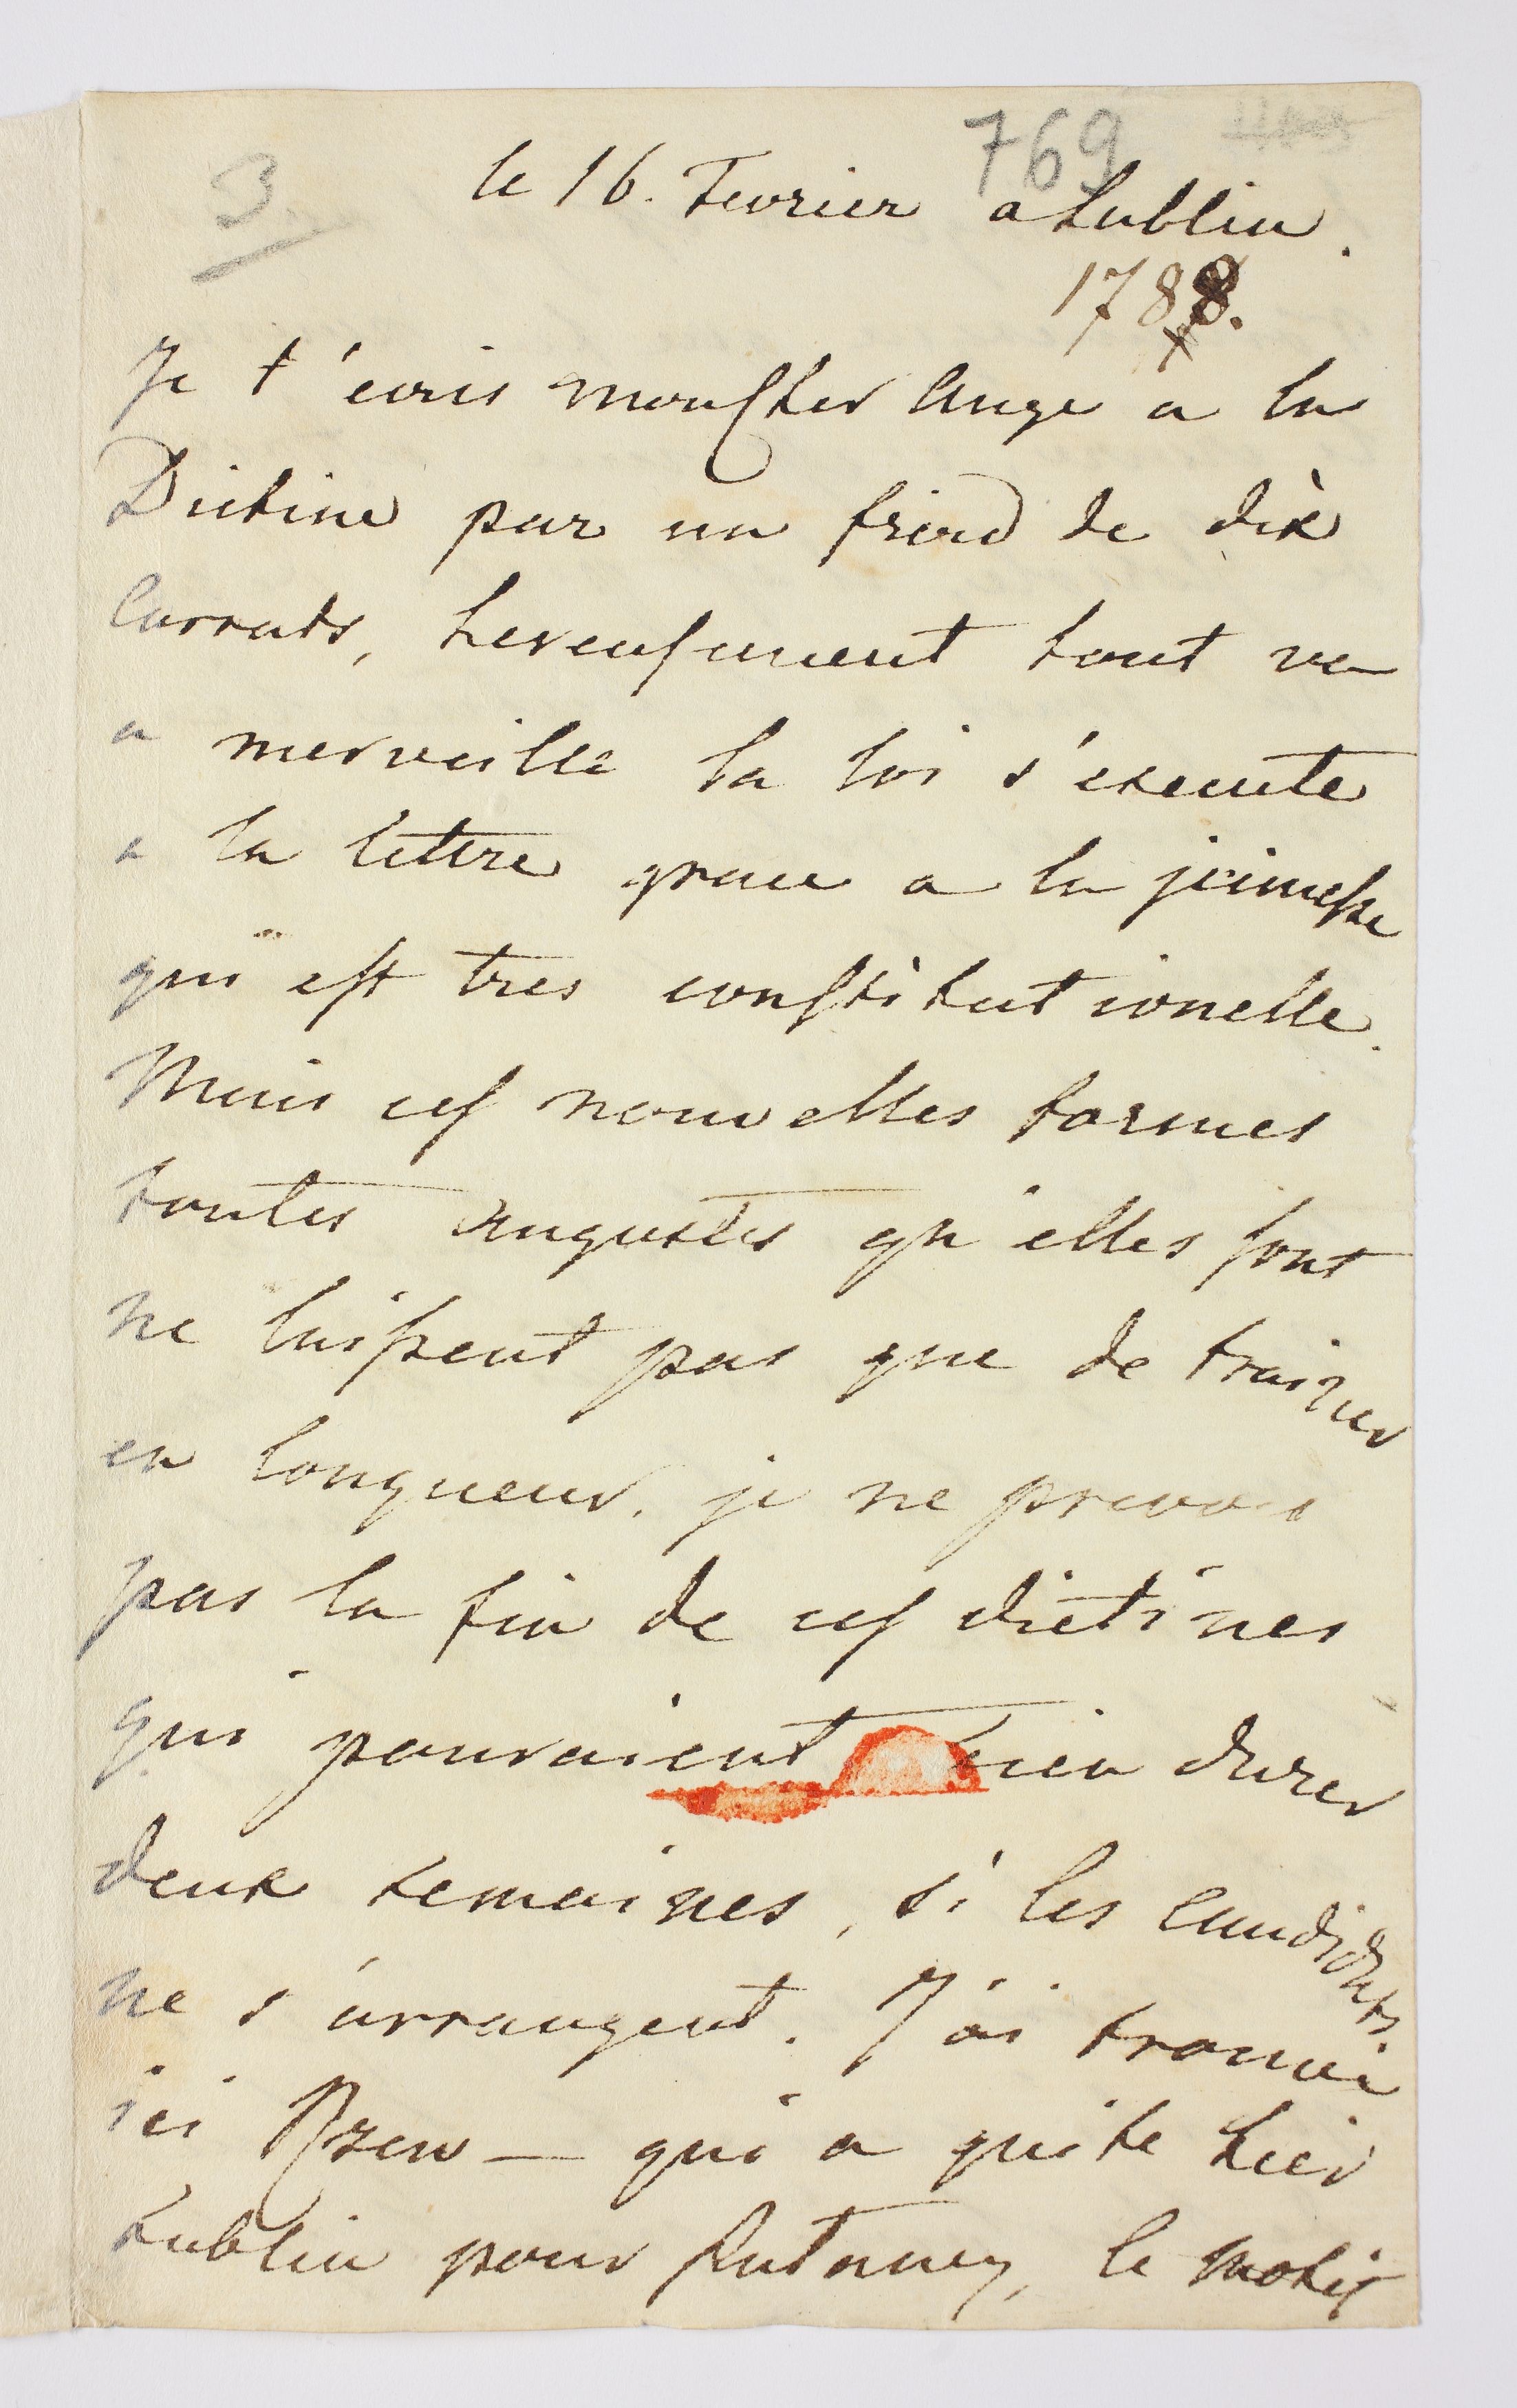 3.
769
le 16. Fevrier a Lublin.
1788.
Je t'ecris mon Cher Ange a la
Dietine par un froid de dix
Carrats, hereusement tout va
a merveille la loi s'execute
a la lettre grace a la jeunesse
qui est tres constitutionelle.
Mais ces nouvelles formes
toutes augustes qu'elles sont
ne laissent pas que de trainer
en longueur. je ne prevois
pas la fin de ces dietines
qui pouraient bien durer
deux semaines, si les Candidats
ne s'arrangent. J'ai trouvé
ici Rzew— qui a quité hier
Lublin pour le motif